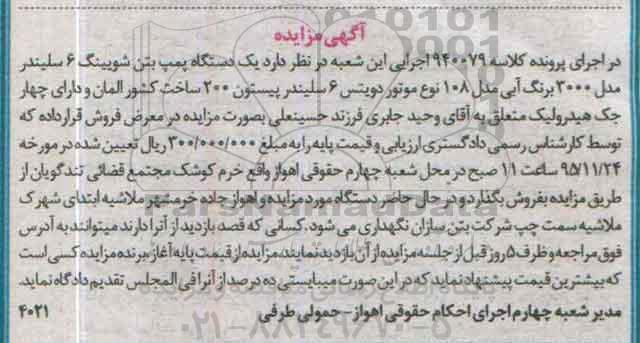 آگهی مزایده
در اجرای پرونده کلاسه ۹۴۰۰۷۹ اجرایی این شعبه در نظر دارد یک دستگاه پمپ بتن شویینگ ۶ سلیندر
مدل ۳۰۰۰ برنگ آبی مدل ۱۰۸ نوع موتور دویتس ۶ سلیندر پیستون ۲۰۰ ساخت کشور المان و دارای چهار
جک هیدرولیک متعلق به آقای وحید جابری فرزند حسینعلی بصورت مزایده در معرض فروش قرار داده که
توسط کارشناس رسمی دادگستری ارزیابی و قیمت پایه را به مبلغ ۳۰۰/۰۰۰/۰۰۰ ریال تعیین شده در مورخه
۹۵/۱۱/۲۴ ساعت ۱۱ صبح در محل شعبه چهارم حقوقی اهواز واقع خرم کوشک مجتمع قضائی تندگویان از
طریق مزایده بفروش بگذارد و در حال حاضر دستگاه مورد مزایده و اهواز جاده خرمشهر ملاشیه ابتدای شهرک
ملاشیه سمت چپ شرکت بتن سازان نگهداری می شود. کسانی که قصد بازدید از آنرا دارند میتوانند به آدرس
فوق مراجعه و ظرف ۵ روز قبل از جلسه مزایده از آن بازدید نمایند. مزایده از قیمت پایه آغاز، برنده مزایده کسی است
که بیشترین قیمت پیشنهاد نماید که در این صورت میبایستی ده درصد از آنرا فی المجلس تقدیم دادگاه نماید.
مدیر شعبه چهارم اجرای احکام حقوقی اهواز - حمولی طرفی
۴۰۲۱
ParsNamadData
۰۲۱-۸۸۳۴۹۶۷۰-۵